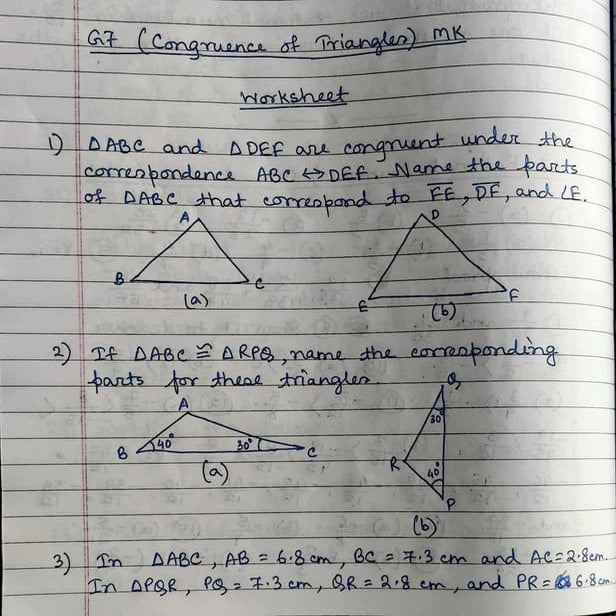 G7 (Congruence of Triangles) MK
Worksheet
1) ∆ABC and ∆DEF are congruent under the
correspondence ABC ↔ DEF. Name the parts
of ∆ABC that correspond to F̅E̅, D̅F̅, and ∠E.
A
B
C
(a)
D
E
F
(b)
2) If ∆ABC ≅ ∆RPQ, name the corresponding
parts for these triangles.
A
B 40° 30° C
(a)
Q
30°
R
40°
P
(b)
3) In ∆ABC, AB = 6.8 cm, BC = 7.3 cm and AC = 2.8 cm.
In ∆PQR, PQ = 7.3 cm, QR = 2.8 cm, and PR = 6.8 cm